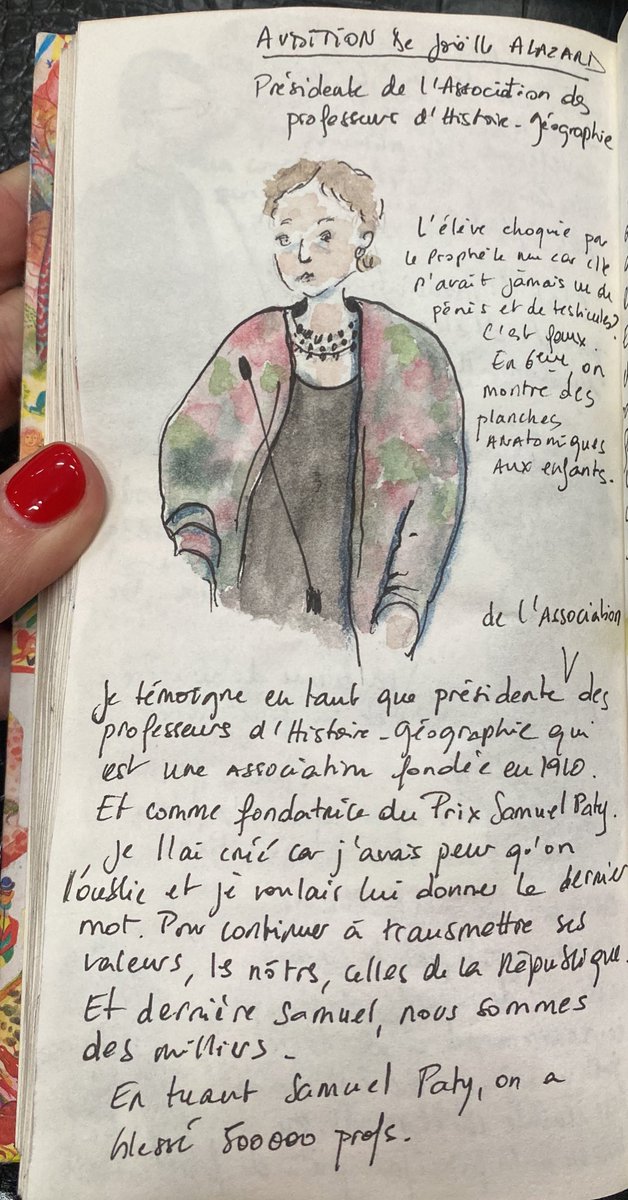 AUDITION de Joëlle ALAZARD
Présidente de l'Association des
professeurs d'Histoire-Géographie
L'élève choquée par
le Prophète nu car elle
n'avait jamais vu de
pénis et de testicules?
C'est faux.
En 6ème on
montre des
planches
ANATOMIQUES
AUX enfants.
de l'Association
Je témoigne en tant que présidente des
professeurs d'Histoire-Géographie qui
est une ASSOCIATION fondée en 1910.
Et comme fondatrice du Prix Samuel Paty.
Je l'ai créé car j'avais peur qu'on
l'oublie et je voulais lui donner le dernier
mot. Pour continuer à transmettre ses
valeurs, les nôtres, celles de la République.
Et derrière Samuel, nous sommes
des milliers.
En tuant Samuel Paty, on a
blessé 500000 profs.